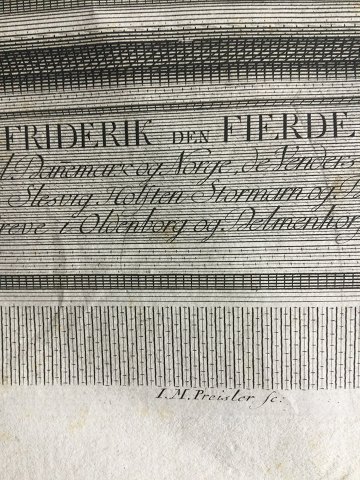 FRIDERIK DEN FIERDE
Danemark og Norge, de Venders
Slesvig, Holsten Stormarn og
reve i Oldenborg og Delmenhor
I. M. Preisler sc: